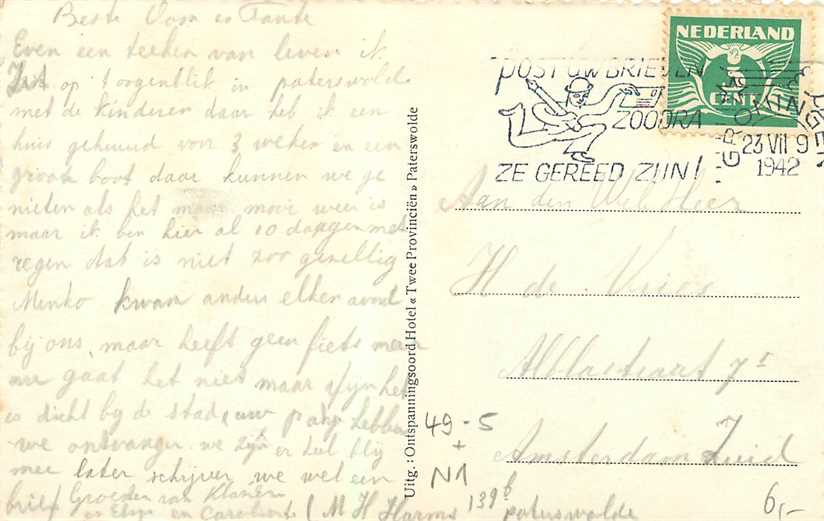 Beste Oom en Tante
Even een teeken van leven ik
zit op t oogenblik in paterswolde
met de kinderen daar heb ik een
huis gehuurd voor 3 weken en een
groote boot daar kunnen we ge
nieten als het maar mooi weer is
maar ik ben hier al 10 dagen met
regen dat is niet zoo gezellig
Menko kwam anders elken avond
bij ons, maar heeft geen fiets meer
nu gaat het niet maar fijn het
is dicht bij de stad, uw pakje hebben
we ontvangen we zijn er heel blij
mee later schrijven we wel een
brief Groeten van
en Elsje en (M H Harms
Uitg.: Ontspanningsoord Hotel « Twee Provinciën » Paterswolde
NEDERLAND
CENT
POST UW BRIEVEN
ZOODRA
ZE GEREED ZIJN!
GRONINGEN
23 VII 9
1942
Aan den Wel Heer
H de Vries
7 I
Amsterdam Zuid
49-5
+
N1
139
paterswolde
6,-